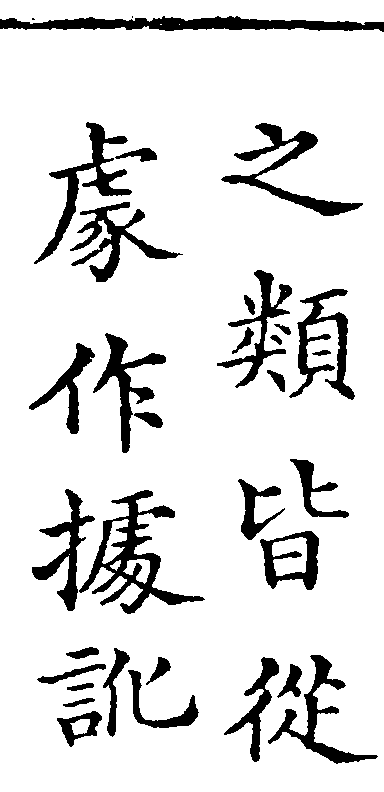 之類皆從
豦作㩀訛